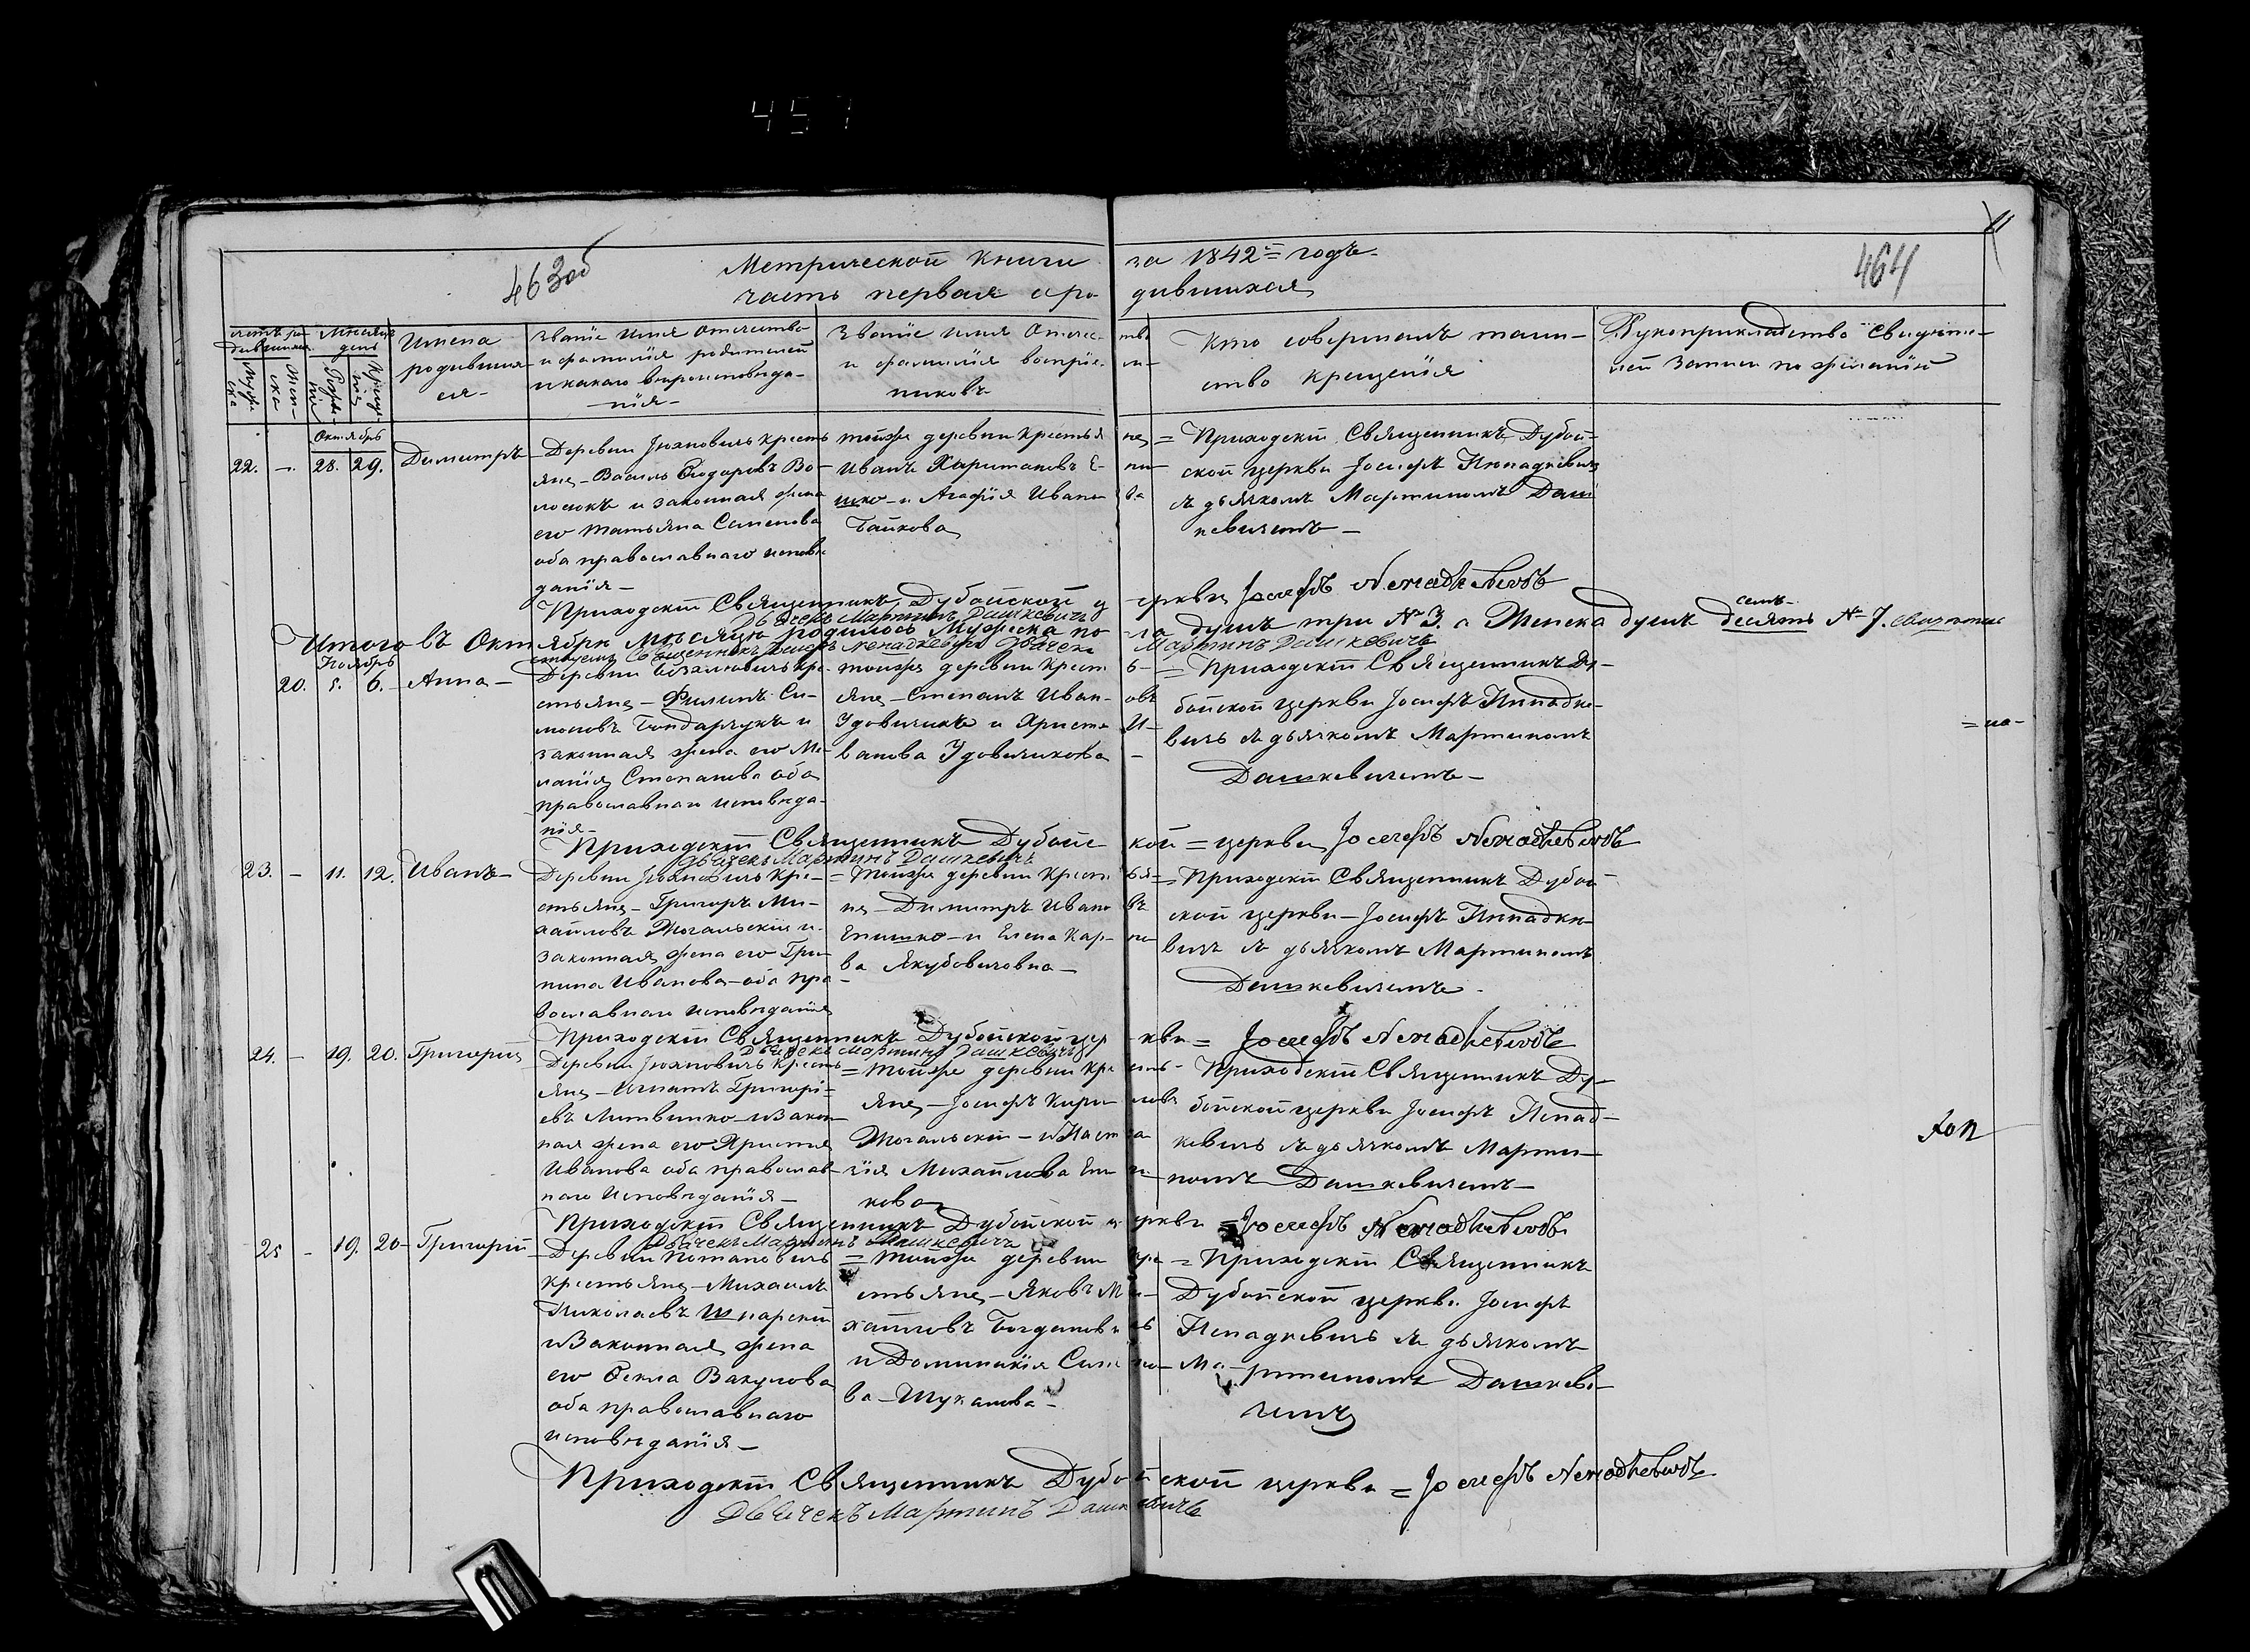 457
463об
Метрической книги за 1842 = годъ
464
часть первая о родившихся
Имена родившихся
Званіе Имя Отчество и фамилія родителей и какого вѣроисповѣданія
Званіе имя Отчество и фамилія воспріемниковъ
Кто совершалъ таинство крещенія
Рукоприкладство Свидетелей записи по желанію
Октябрь
22. - 28. 29. Димитръ
Деревни крестьянъ
Василь Ѳеодоровъ
и законная жена
его Татьяна Семенова
оба православнаго исповѣ
данія
тойже деревни крестьяне
Иванъ Харитоновъ
и Агафія Иванова
Байкова
= Приходскій Священникъ Дубой-
ской церкви Іосифъ Ненадкевичъ
съ дьячкомъ Мартиномъ Даш
кевичемъ
Приходскій Священникъ Дубойской церкви Іосифъ Ненадкевичъ
Дьячекъ Мартинъ Дашкевичъ
Итого въ Октябрѣ мѣсяцѣ родилось Мужеска пола душъ три № 3. а Женска душъ семь десять № 7.
Священникъ Іосифъ Ненадкевичъ Дьячекъ Мартинъ Дашкевичъ
Ноябрь
20. 5. 6. Анна
Деревни кре-
стьянъ Филипъ Си-
моновъ Бондарчукъ и
законная жена его Ме-
ланія Степанова оба
православнаго исповѣда-
нія
тойже деревни кресть
яне Степанъ Ивановъ
Удовичикъ и Христина И-
ванова Удовичикова
= Приходскій Священникъ Ду-
бойской церкви Іосифъ Ненадке-
вичъ съ дьячкомъ Мартиномъ
Дашкевичемъ
Приходскій Священникъ Дубойской = церкви Іосифъ Ненадкевичъ
Дьячекъ Мартинъ Дашкевичъ
23. - 11. 12. Иванъ
Деревни кре-
стьянъ Григоръ Ми-
хаиловъ Жогальскій и
законная жена его
Иванова оба пра
вославнаго исповѣданія
= тойже деревни крестья
не Димитръ Ивановъ
и Елена Карпо
ва Якубовичовна
= Приходскій Священникъ Дубой
ской церкви Іосифъ Ненадке-
вичъ съ дьячкомъ Мартиномъ
Дашкевичемъ
Приходскій Священникъ Дубойской церкви = Іосифъ Ненадкевичъ
Дьячекъ Мартинъ Дашкевичъ
24. - 19. 20. Григорій
Деревни кресть
янъ Игнатъ Григорі-
евъ Литвинко и закон
ная жена его Христина
Иванова оба православ
наго исповѣданія
= тойже деревни кресть
яне Іосифъ Кириловъ
Жогальскій и Наста
сія Михайлова
кова
Приходскій Священникъ Ду-
бойской церкви Іосифъ Ненад-
кевичъ съ дьячкомъ Марти-
номъ Дашкевичемъ
Приходскій Священникъ Дубойской церкви = Іосифъ Ненадкевичъ
Дьячекъ Мартинъ Дашкевичъ
25 - 19. 20 Григорій
Деревни Потаповичъ
крестьянъ Михаилъ
Николаевъ Шпарскій
и законная жена
его Ѳекла Вакулова
оба православнаго
исповѣданія
= тойже деревни кре
стьяне Яковъ Ми
хайловъ Богдановичъ
и Доминикія Симоно
ва Шукалова
= Приходскій Священникъ
Дубойской церкви Іосифъ
Ненадкевичъ съ дьячкомъ
Мартиномъ Дашкеви
чемъ
Приходскій Священникъ Дубойской церкви = Іосифъ Ненадкевичъ
Дьячекъ Мартинъ Дашкевичъ